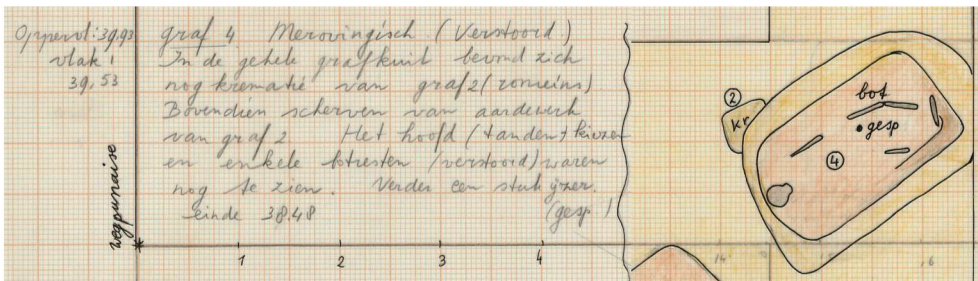 Oppervl: 39,93
vlak 1
39,53
graf 4 Merovingisch (Verstoord)
In de gehele grafkuil bevond zich
nog krematie van graf 2 (romeins)
Bovendien scherven van aardewerk
van graf 2 Het hoofd (tanden + kiezen
en enkele botresten (verstoord) waren
nog te zien. Verder een stuk ijzer.
einde 38.48 (gesp)
wegpunaise
1 2 3 4
2
kr
bot
gesp
4
14 16